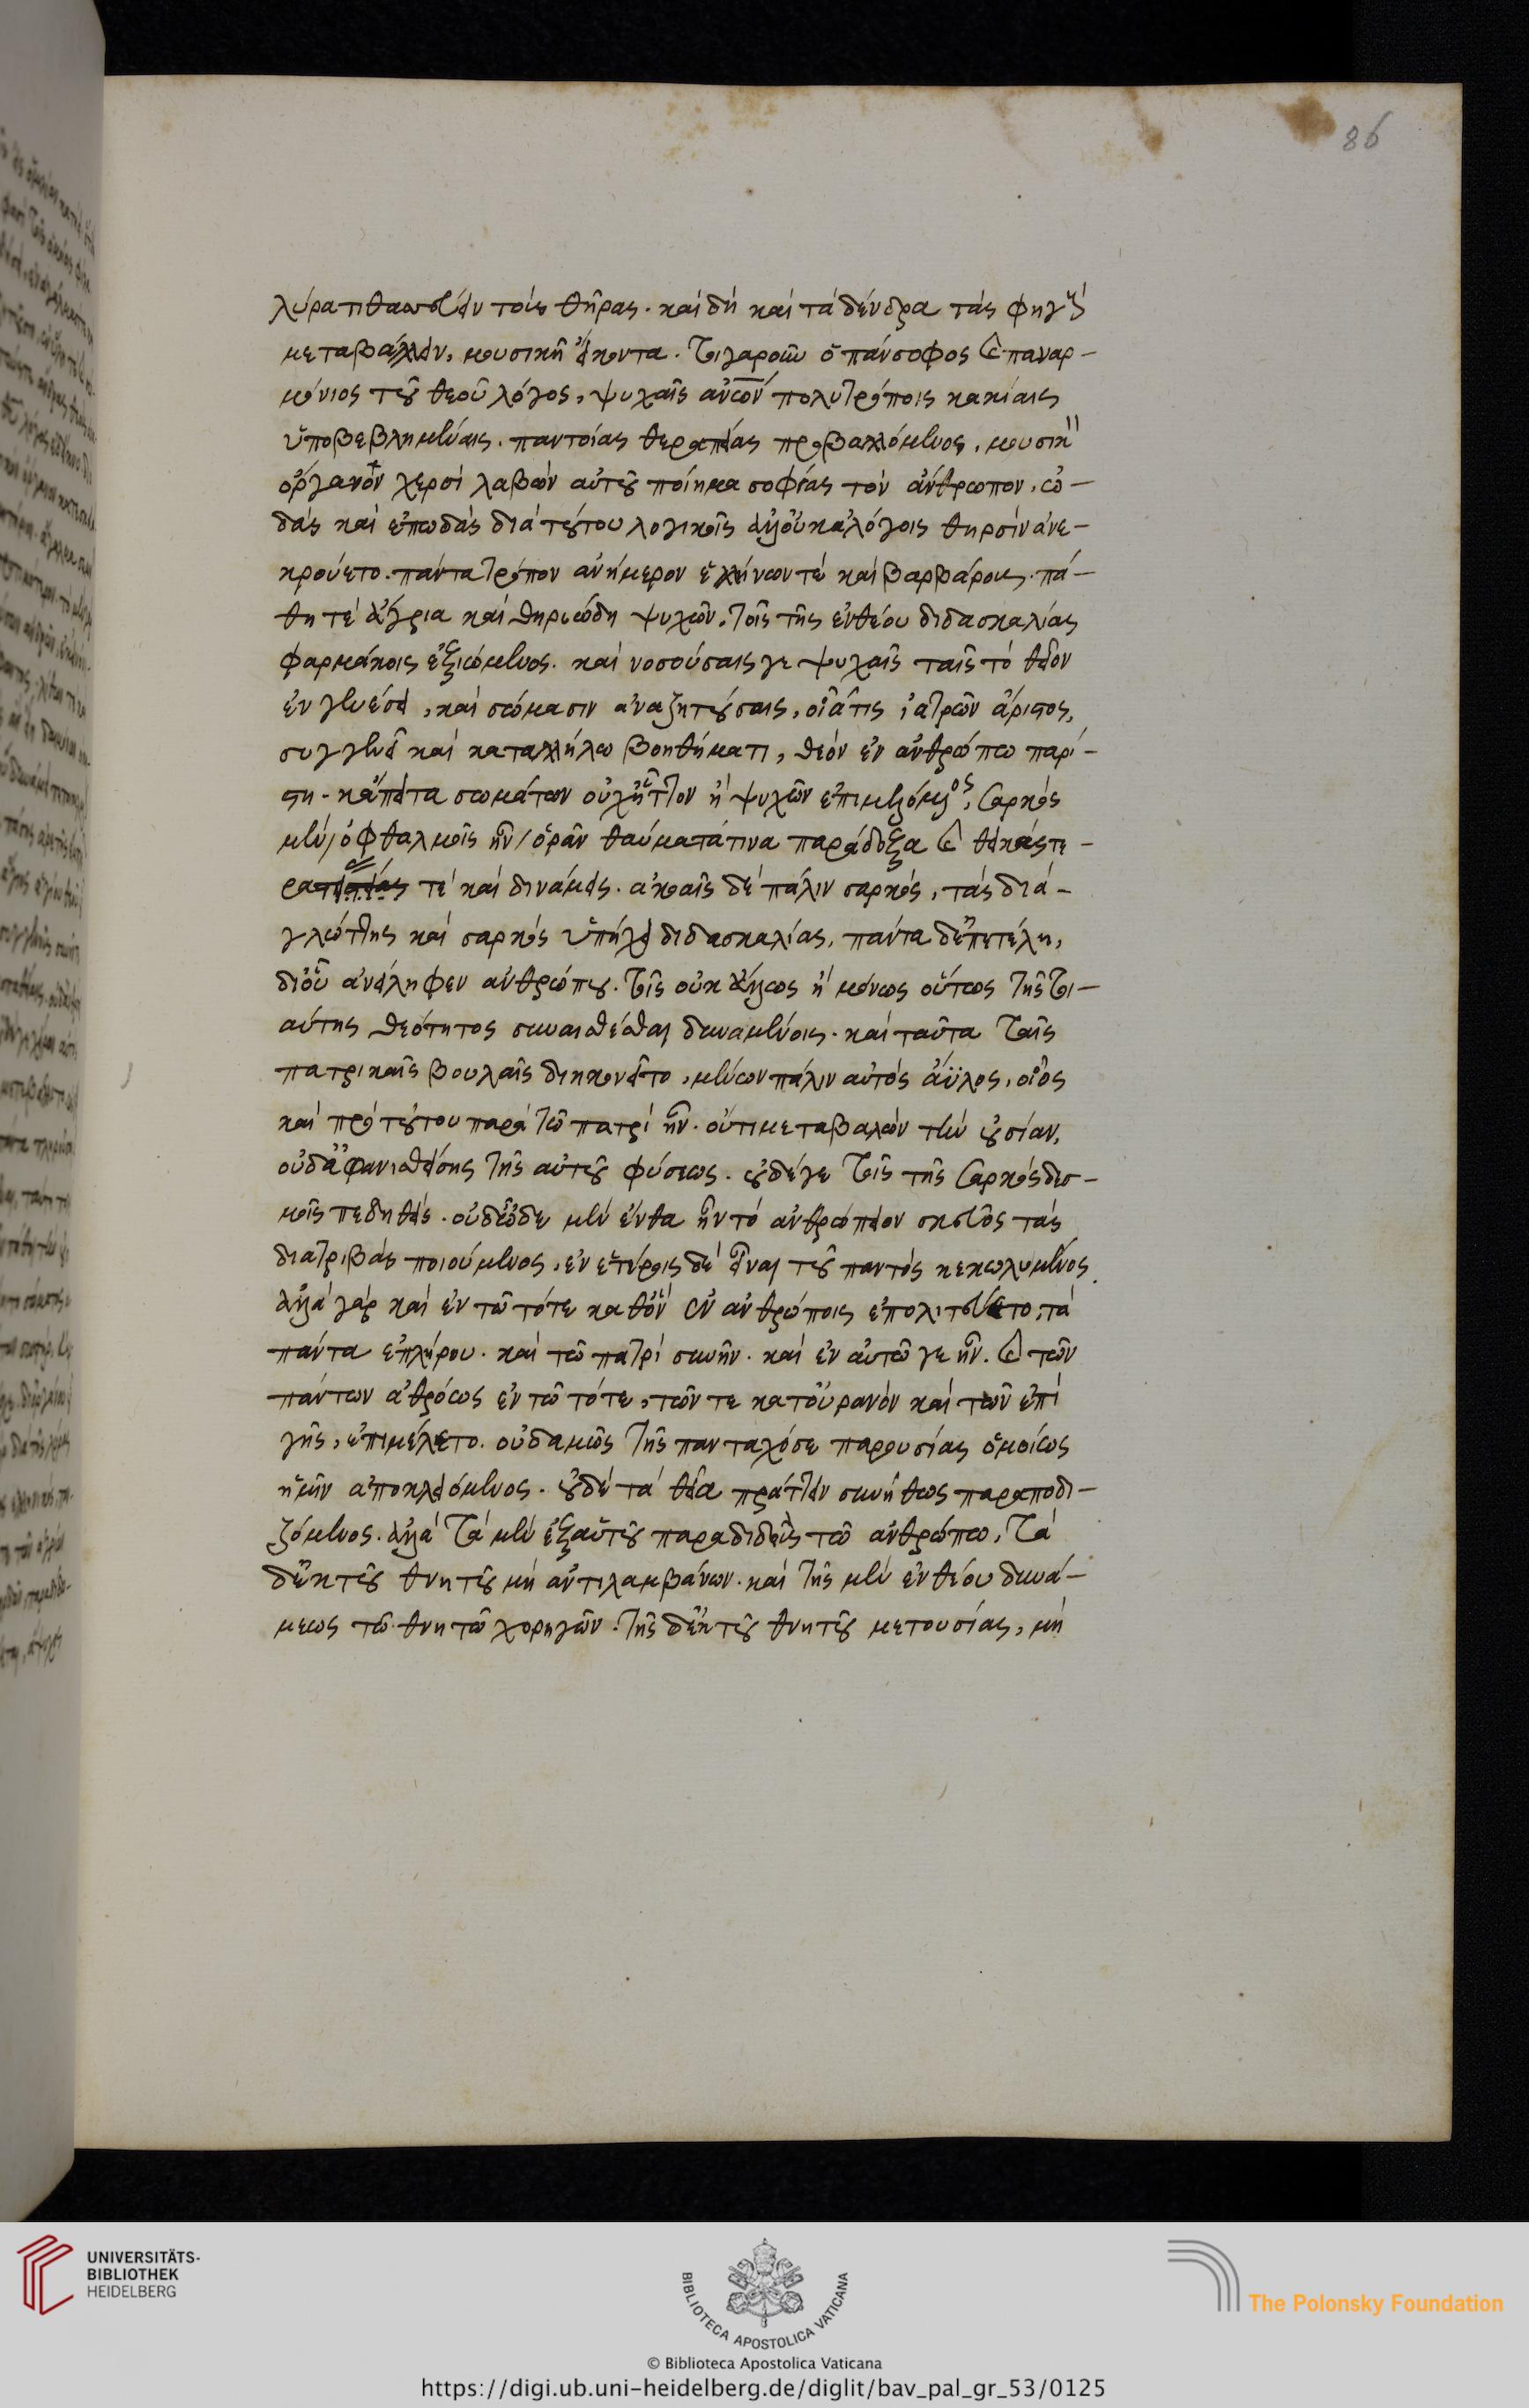 86
λύρα τιθασσεύειν τοὺς θῆρας. καὶ δὴ καὶ τὰ δένδρα τὰς φηγοὺς
μεταβάλλειν, μουσικῇ εἴκοντα. τοιγαροῦν ὁ πάνσοφος καὶ παναρ-
μόνιος τοῦ θεοῦ λόγος, ψυχαῖς ἀνθρώπων πολυτρόποις κακίαις
ὑποβεβλημέναις. παντοίας θεραπείας προβαλλόμενος, μουσικὸν
ὄργανον χερσὶ λαβὼν αὐτοῦ ποίημα σοφίας τὸν ἄνθρωπον, ὠ-
δὰς καὶ ἐπωδὰς διὰ τούτου λογικοῖς ἀλλ' οὐκ ἀλόγοις θηρσὶν ἀνε-
κρούετο. πάντα τρόπον ἀνήμερον ἑλλήνων τὲ καὶ βαρβάρους. πά-
θη τὲ ἄγρια καὶ θηριώδη ψυχῶν. τοῖς τῆς ἐνθέου διδασκαλίας
φαρμάκοις ἐξιώμενος. καὶ νοσούσαις γε ψυχαῖς ταῖς τὸ θεῖον
ἐν γενέσει, καὶ σώμασιν ἀναζητούσαις, οἷά τις ἰατρῶν ἄριστος,
συγγενεῖ καὶ καταλλήλω βοηθήματι, θεὸν ἐν ἀνθρώπω παρί-
στη. κἄπειτα σωμάτων οὐχ ἧττον ἢ ψυχῶν ἐπιμελόμενος, σαρκὸς
μὲν ὀφθαλμοῖς ἦν ὁρᾶν θαύματά τινα παράδοξα καὶ θεικάς τε-
ρατείας τὲ καὶ δυνάμεις. ἀκοαῖς δὲ πάλιν σαρκὸς, τὰς διὰ-
γλώττης καὶ σαρκὸς ὑπήχει διδασκαλίας, πάντα δ' ἐπετέλη,
δι' οὗ ἀνείληφεν ἀνθρώπου. τοῖς οὐκ ἄλλως ἢ μόνως οὕτως τῆς τοι-
αύτης θεότητος συναισθέσθαι δυναμένοις. καὶ ταῦτα ταῖς
πατρικαῖς βουλαῖς διηκονεῖτο, μένων πάλιν αὐτὸς ἄϋλος, οἷος
καὶ πρὸ τούτου παρὰ τῶ πατρὶ ἦν. οὔτι μεταβαλὼν τὴν οὐσίαν,
οὐδ' ἀφανισθείσης τῆς αὐτοῦ φύσεως. οὐδέ γε τοῖς τῆς σαρκὸς δεσ-
μοῖς πεδηθείς. οὐδ' ὧδε μὲν ἔνθα ἦν τὸ ἀνθρώπειον σκεῦος τὰς
διατριβὰς ποιούμενος, ἐν ἑτέροις δὲ εἶναι τοῦ παντὸς κεκωλυμένος.
ἀλλὰ γὰρ καὶ ἐν τῶ τότε καθ' ὃν ἐν ἀνθρώποις ἐπολιτεύετο, τὰ
πάντα ἐπλήρου. καὶ τῶ πατρὶ συνῆν. καὶ ἐν αὐτῶ γε ἦν. καὶ τῶν
πάντων ἀθρόως ἐν τῶ τότε, τῶν τε κατ' οὐρανὸν καὶ τῶν ἐπὶ
γῆς, ἐπιμέλετο. οὐδαμῶς τῆς πανταχόσε παρουσίας ὁμοίως
ἡμῖν ἀποκλειόμενος. οὐδὲ τὰ θεῖα πράττειν συνήθως παραποδι-
ζόμενος. ἀλλὰ τὰ μὲν ἐξ αὐτοῦ παραδιδοὺς τῶ ἀνθρώπω, τὰ
δ' ἐκ τοῦ θνητοῦ μὴ ἀντιλαμβάνων. καὶ τῆς μὲν ἐνθέου δυνά-
μεως τῶ θνητῶ χορηγῶν. τῆς δ' ἐκ τοῦ θνητοῦ μετουσίας, μὴ
UNIVERSITÄTS-
BIBLIOTHEK
HEIDELBERG
BIBLIOTECA APOSTOLICA VATICANA
The Polonsky Foundation
© Biblioteca Apostolica Vaticana
https://digi.ub.uni-heidelberg.de/diglit/bav_pal_gr_53/0125